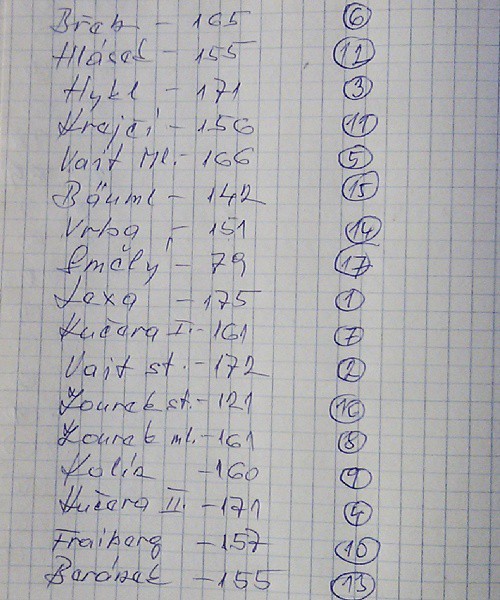 Břak - 165 6
Hlásek - 155 12
Hykl - 171 3
Krajčí - 156 11
Vait Ml. - 166 5
Bäuml - 142 15
Vrba - 151 14
Smělý - 79 17
Jaxa - 175 1
Kučara I. - 161 7
Vait st. - 172 2
Zourek st. - 121 16
Zourek ml. - 161 8
Kolín - 160 9
Kučara II. - 171 4
Fraiberg - 157 10
Beránek - 155 13